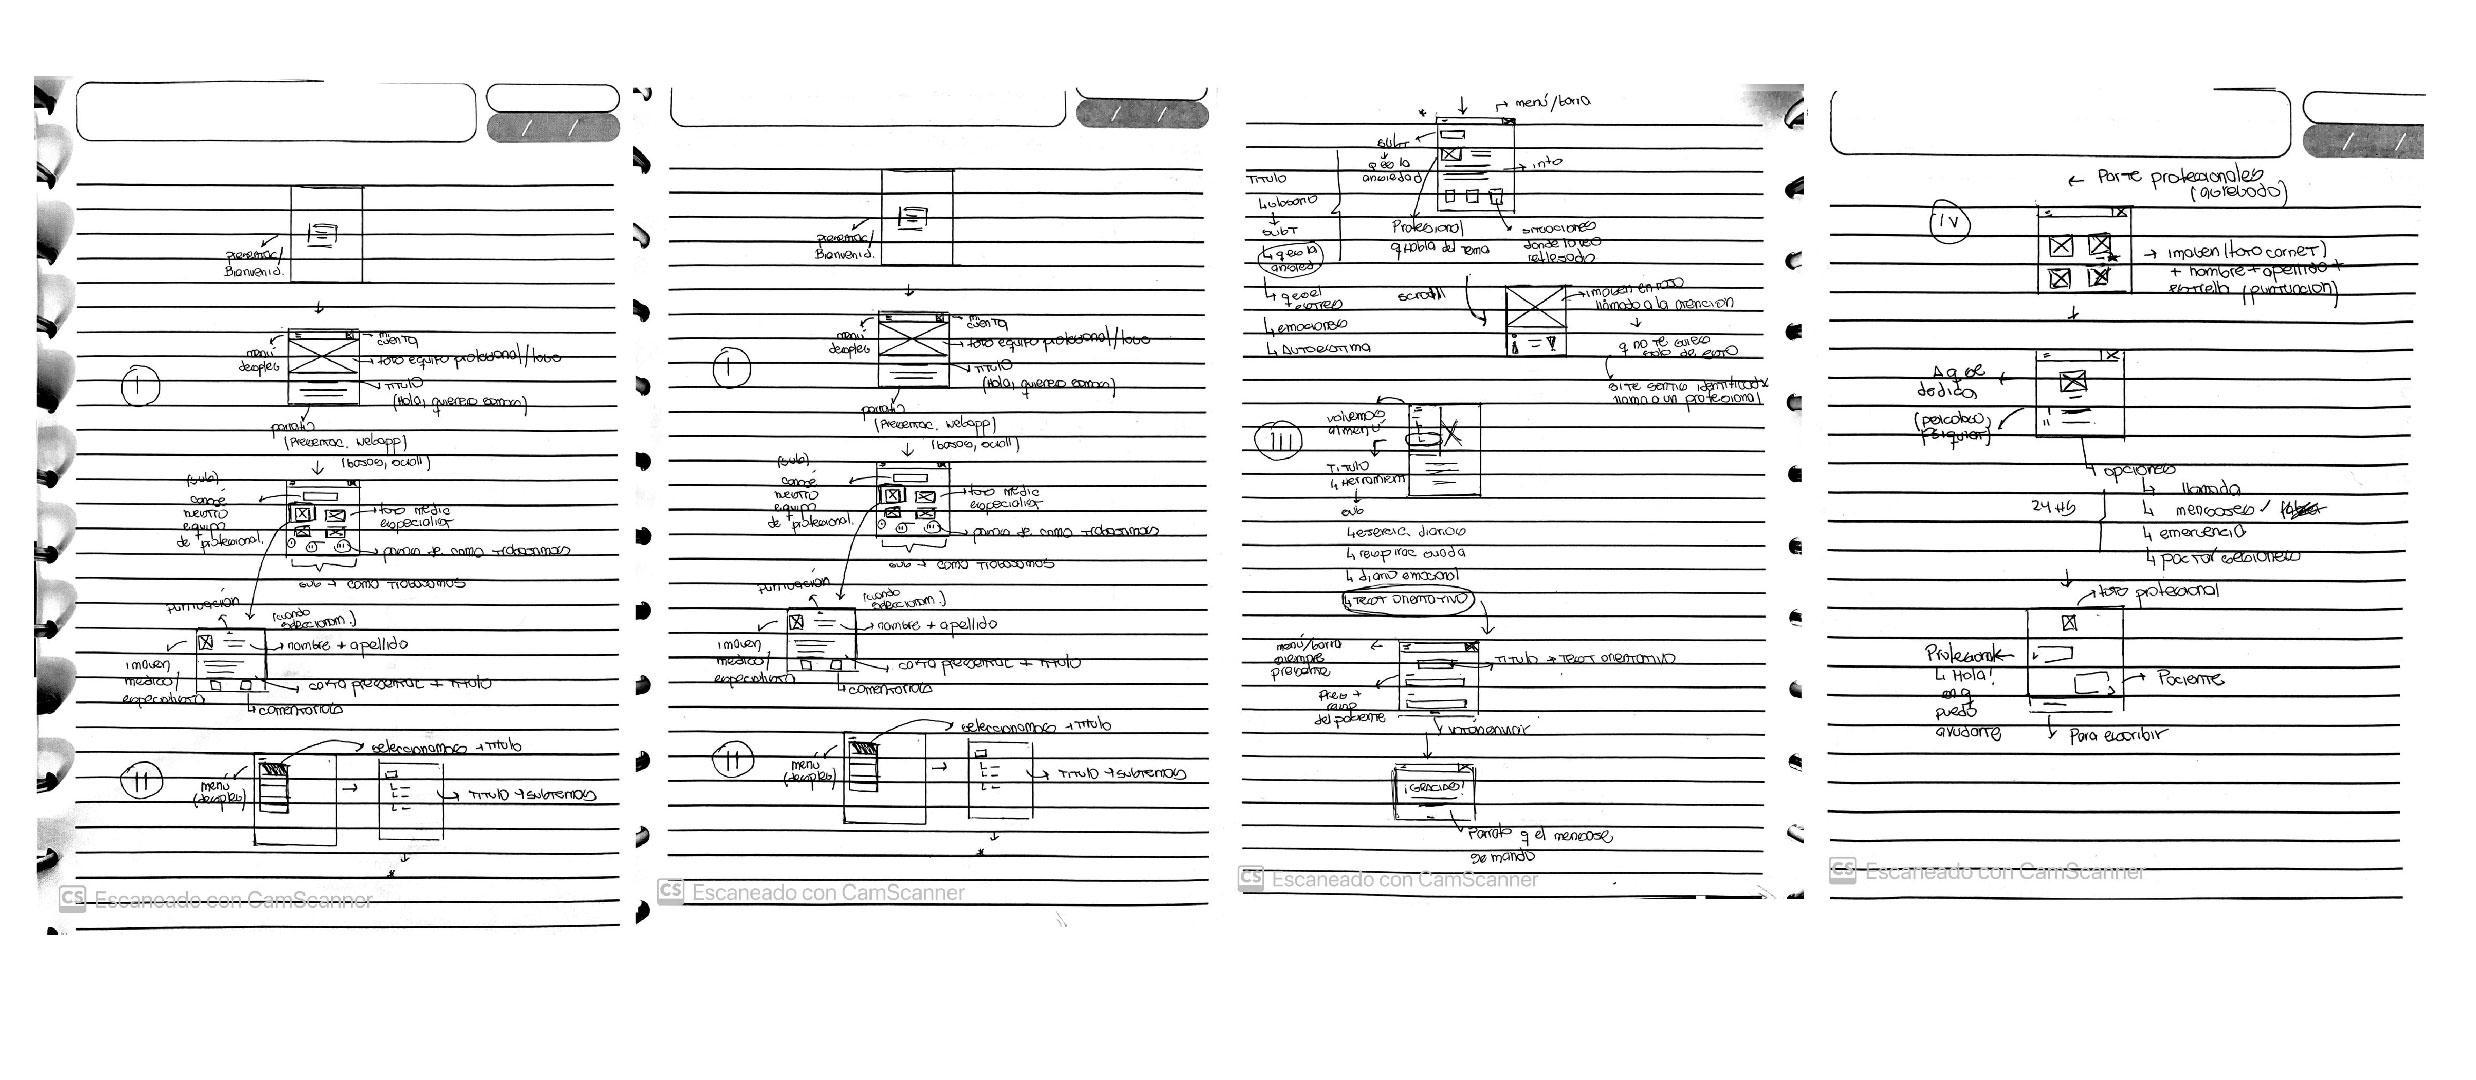 Bienvenid.
menú
desples
mi
cuenta
foto equipo profesional/logo
TITULO
(Hola, quienes somos)
I
(Presentac. webapp)
(bajas, scroll)
(sub)
conocé
nuestro
equipo
de profesional.
foto medic
especialist
sub → como trabajamos
puntuación
(cuando
seleccionam.)
nombre + apellido
imagen
medico/
especialista
carta presentac + titulo
comentarios
II
seleccionamos → titulo
menú
(desples)
TITULO → subtemas
*
Escaneado con CamScanner
Bienvenid.
menú
desples
mi
cuenta
foto equipo profesional/logo
TITULO
(Hola, quienes somos)
I
(Presentac. webapp)
(bajas, scroll)
(sub)
conocé
nuestro
equipo
de profesional.
foto medic
especialist
sub → como trabajamos
puntuación
(cuando
seleccionam.)
nombre + apellido
imagen
medico/
especialista
carta presentac + titulo
comentarios
II
seleccionamos → titulo
menú
(desples)
TITULO → subtemas
*
Escaneado con CamScanner
* menú/barra
subt
q es la
ansiedad
info
TITULO
subt
q es la
ansied
Profesional
q habla del tema
situaciones
donde lo veo
reflejado
q es el
estres
emociones
AUTOESTIMA
scroll
imagen en rojo
llamado a la atencion
q no te quedes
solo de esto
si te sentis identificadx
llama a un profesional
III
volvemos
al menú
TITULO
↳ Herramient
sub
↳ ejercic. diarios
↳ respirac guiada
↳ diario emocional
↳ TEST ORIENTATIVO
menú/barra
siempre
presente
TITULO → TEST ORIENTATIVO
Preg +
del paciente
¡GRACIAS!
Parrafo q el mensaje
se mando
Escaneado con CamScanner
← Parte profesionales
IV
→ imagen (foto carnet)
+ nombre + apellido +
estrella (puntuacion)
A q se
dedica
(psicologo,
Psiquiat)
↳ opciones
↳ llamada
24 hs
↳ mensajes /
↳ emergencia
↳ pactar sesiones
foto profesional
Profesional
↳ Hola!
en q
puedo
ayudarte
Paciente
Para escribir
Escaneado con CamScanner